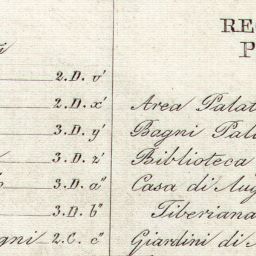 RE
P
2. D. v'
2. D. x' Area Palat
3. D. y' Bagni Pala
3. D. z' Biblioteca
3. D. a" Casa di Aug
3. D. b" Tiberiana
gni 2. C. c" Giardini di A